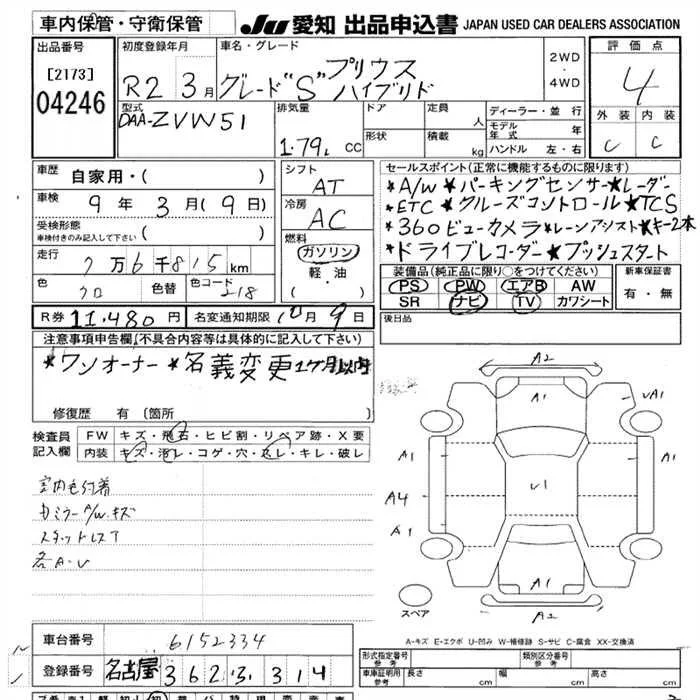 車内保管・守衛保管
JU 愛知 出品申込書 JAPAN USED CAR DEALERS ASSOCIATION
出品番号
[2173]
04246
初度登録年月
R2 3月
車名・グレード
プリウス
グレード"S" ハイブリド
2WD
・
4WD
評価点
4
外装 内装
C C
型式
DAA-ZVW51
排気量
1.79L CC
ドア
形状
定員
人
積載
kg
ディーラー・並行
モデル年式 年
ハンドル 左・右
車歴
自家用・( )
車検
9年 3月(9日)
受検形態
車検付きのみ記入して下さい ( )
走行
7万6千815km
色
クロ
色替
色コード
218
シフト
AT
冷房
AC
燃料
ガソリン
軽・油
( )
セールスポイント(正常に機能するものに限ります)
*A/W ★パーキングセンサー★レーダー
★ETC ★クルーズコントロール ★TCS
★360ビューカメラ ★レーンアシスト ★キー2本
★ドライブレコーダー ★プッシュスタート
装備品(純正品に限り○をつけてください)
PS PW エアB AW
SR ナビ TV カワシート
新車保証書
有・無
R券 11,480円
名変通知期限 10月9日
後日品
注意事項申告欄(不具合内容等は具体的に記入して下さい)
*ワンオーナー *名義変更1ケ月以内
修復歴 有(箇所 )
検査員
記入欄
FW キズ・飛石・ヒビ割・リペア跡・X要
内装 キズ・汚レ・コゲ・穴・スレ・キレ・破レ
室内色付着
カミラーA/W.キズ
スタットレスT
各A-U
A2
A1
UA1
A1
A1
A4
U1
A1
A1
A2
スペア
車台番号
6152334
登録番号
名古屋 362 ふ 314
A-キズ E-エクボ U-凹み W-補修跡 S-サビ C-腐食 XX-交換済
形式指定番号
参考
類別区分番号
参考
車庫証明用
参考
長さ cm
幅 cm
高さ cm